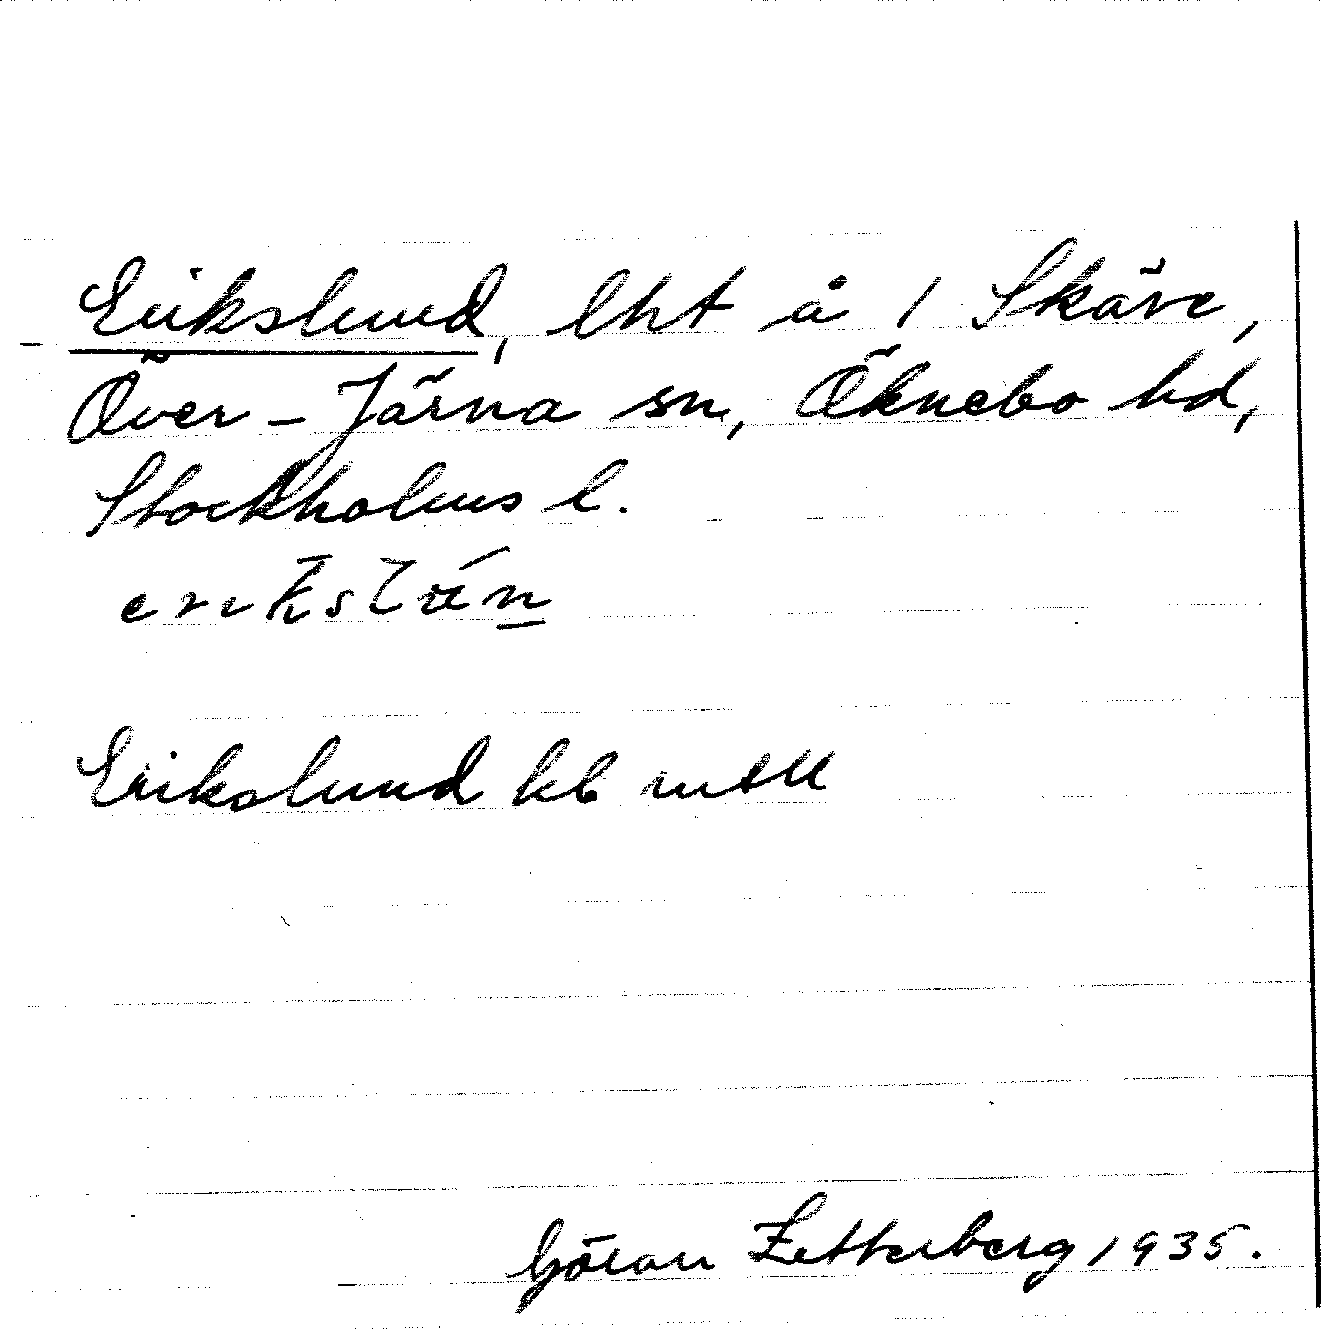 Erikslund, lht å 1 Skäve,
Över-Järna sn, Öknebo hd,
Stockholms l.
Erikslund kb mtll
Göran Zetterberg 1935.